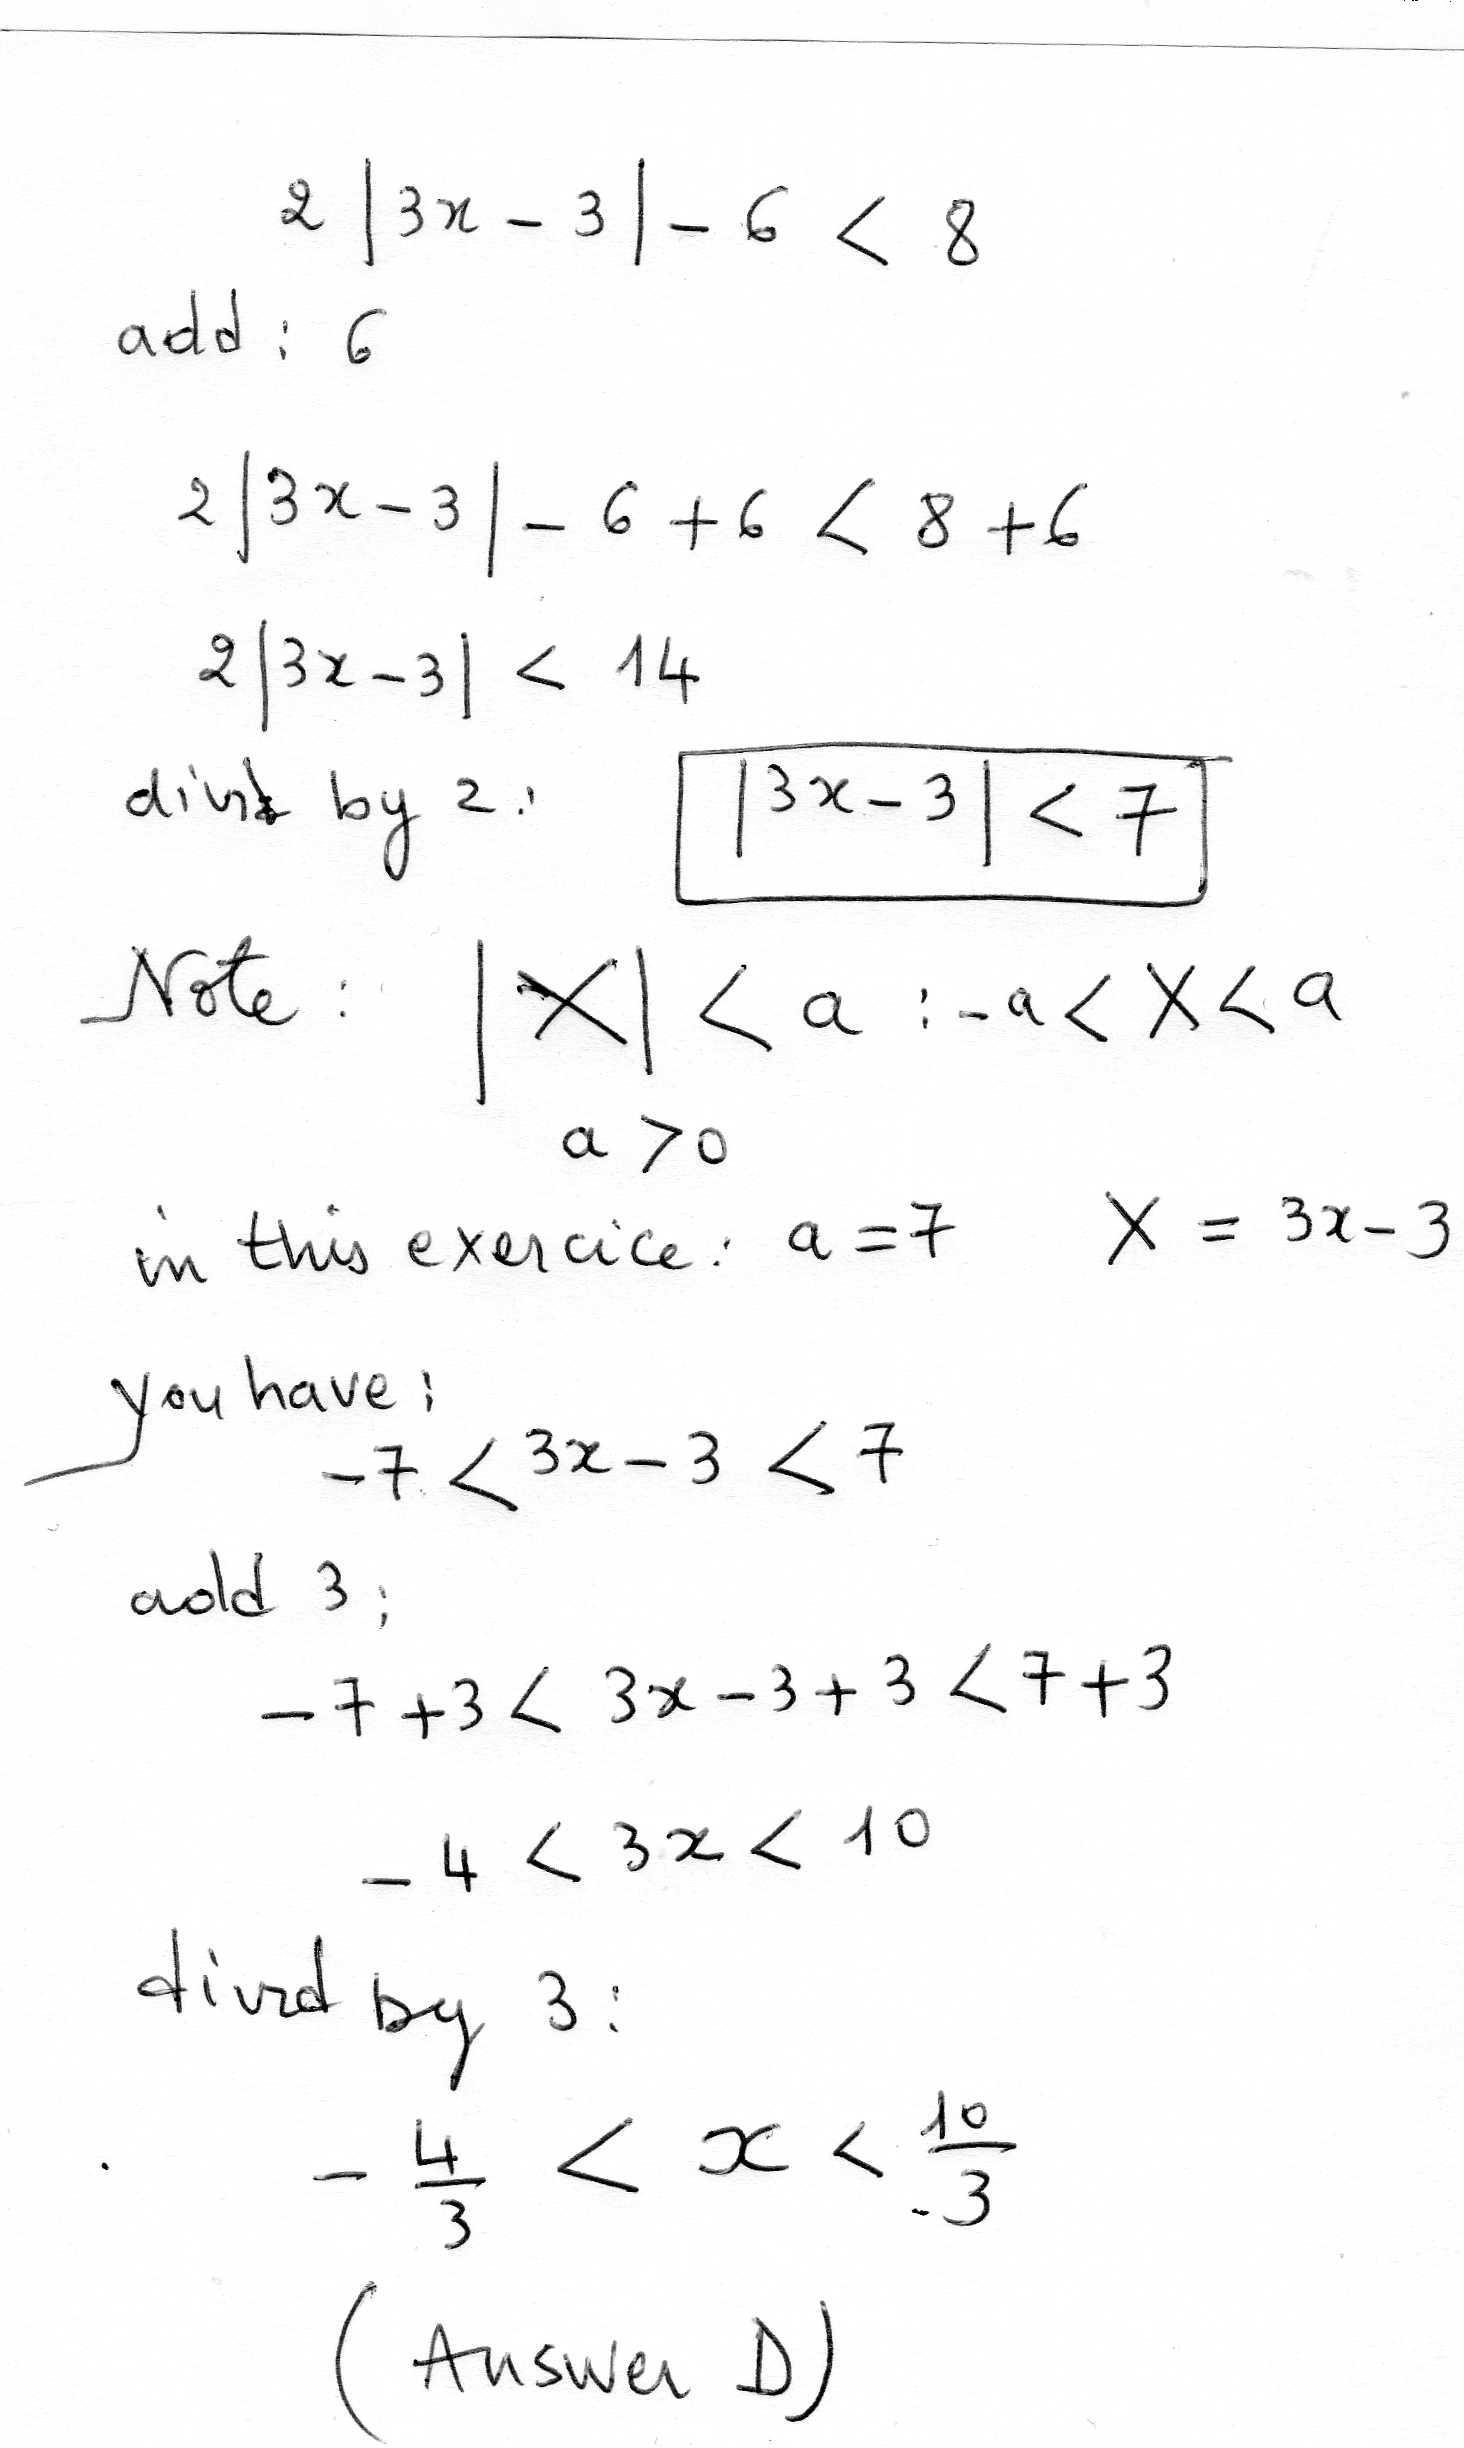 2 |3x - 3| - 6 < 8
add : 6
2|3x-3| - 6 + 6 < 8 + 6
2|3x-3| < 14
by 2: |3x-3| < 7
Note : |X| < a : -a < X < a
a > 0
in this exercice: a = 7 X = 3x-3
you have:
-7 < 3x - 3 < 7
add 3;
-7 + 3 < 3x - 3 + 3 < 7 + 3
-4 < 3x < 10
divid by 3:
- 4/3 < x < 10/3
(Answer D)